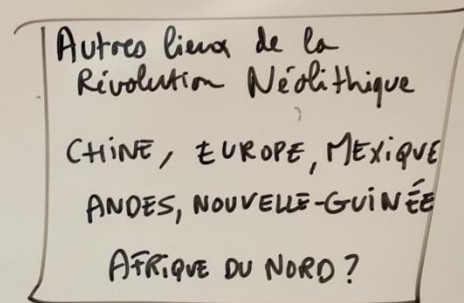 Autres lieux de la
Révolution Néolithique
CHINE, EUROPE, MEXIQUE
ANDES, NOUVELLE-GUINÉE
AFRIQUE DU NORD?